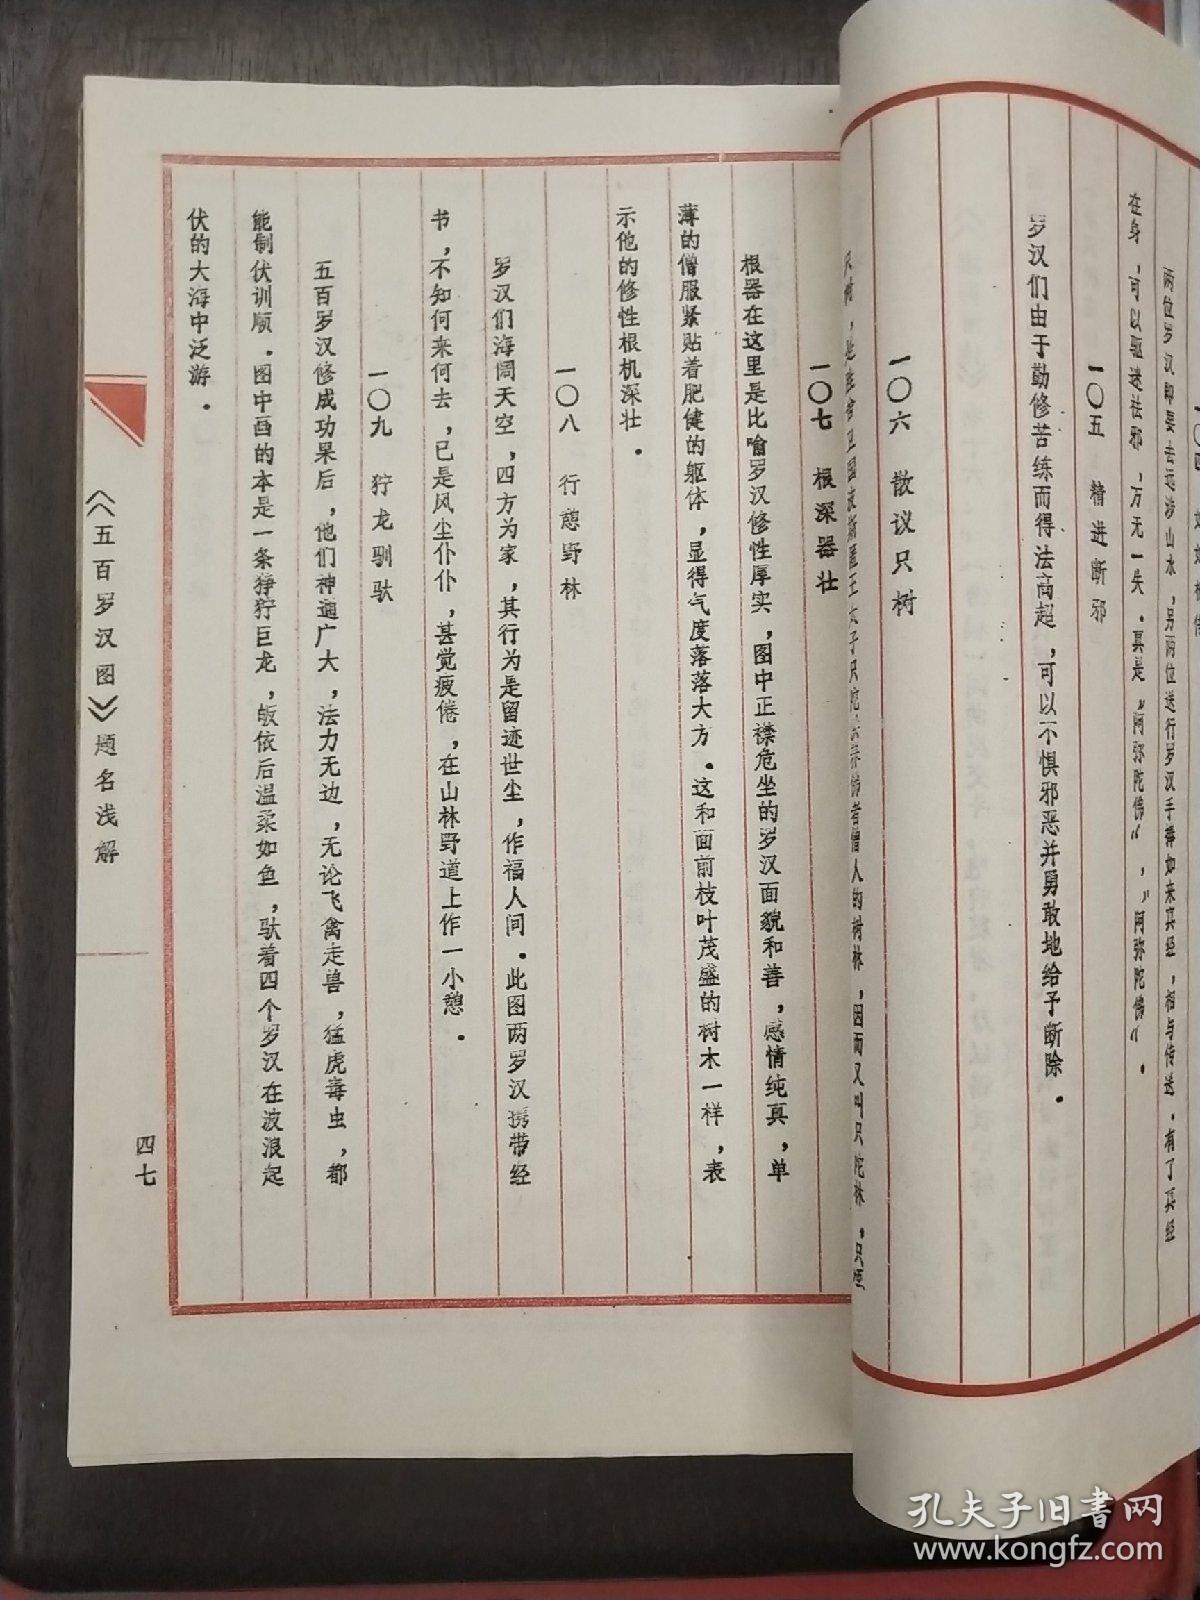 两位罗汉即要去远涉山水，另两位送行罗汉手捧如来真经，相与传送．有了真经
在身，可以驱迷祛邪，万无一失．真是“阿弥陀佛”，“阿弥陀佛”．
一〇五 精进断邪
罗汉们由于勤修苦练而得法高超，可以不惧邪恶并勇敢地给予断除．
一〇六 散议只树
人的树林，因而又叫只陀林．
一〇七 根深器壮
根器在这里是比喻罗汉修性厚实，图中正襟危坐的罗汉面貌和善，感情纯真，单
薄的僧服紧贴着肥健的躯体，显得气度落落大方．这和面前枝叶茂盛的树木一样，表
示他的修性根机深壮．
一〇八 行憩野林
罗汉们海阔天空，四方为家，其行为是留迹世尘，作福人间．此图两罗汉携带经
书，不知何来何去，已是风尘仆仆，甚觉疲倦，在山林野道上作一小憩．
一〇九 狞龙驯驮
五百罗汉修成功果后，他们神通广大，法力无边，无论飞禽走兽，猛虎毒虫，都
能制伏训顺．图中画的本是一条狰狞巨龙，皈依后温柔如鱼，驮着四个罗汉在波浪起
伏的大海中泛游．
《五百罗汉图》题名浅解
四七
孔夫子旧书网
www.kongfz.com